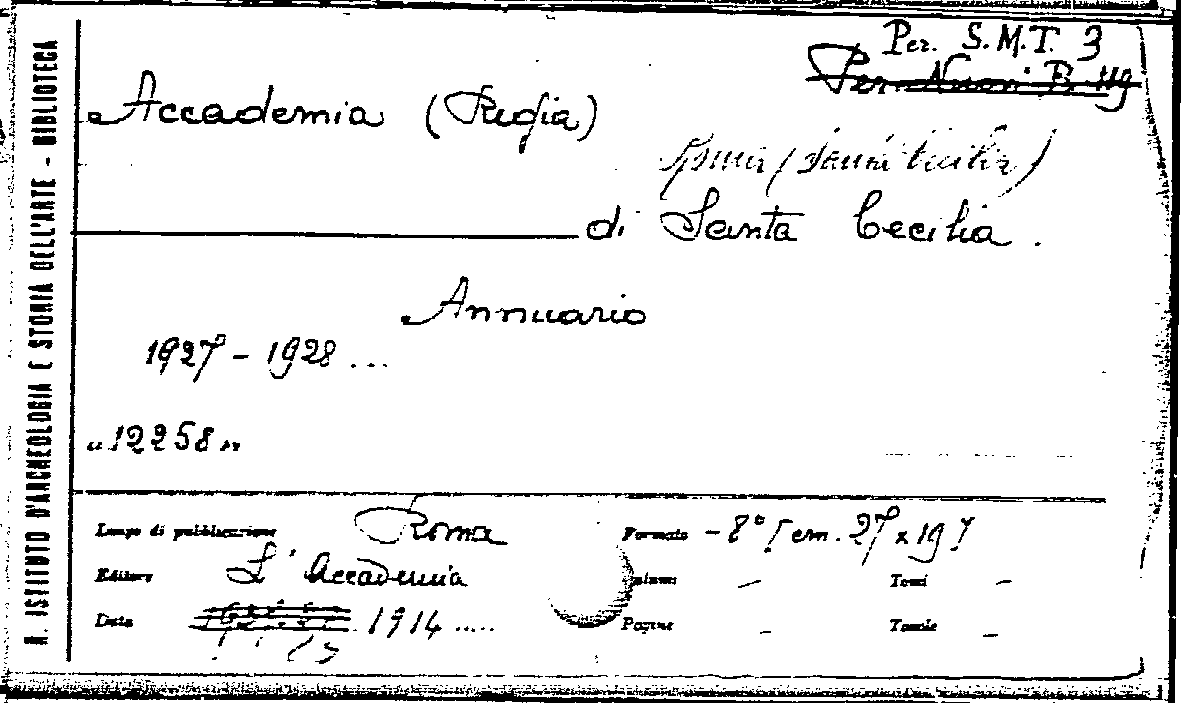 R. ISTITUTO D'ARCHEOLOGIA E STORIA DELL'ARTE - BIBLIOTECA
Per. S.M.T. 3
Per. Nuovi B 119
Accademia (Regia)
Roma (Santa Cecilia)
di Santa Cecilia.
Annuario
1927 - 1928 ...
"12258"
Luogo di pubblicazione Roma
Formato - 8° [cm. 27 x 19]
Editore L'Accademia
Volumi - Tomi -
Data 1914 .....
Pagine - Tavole -